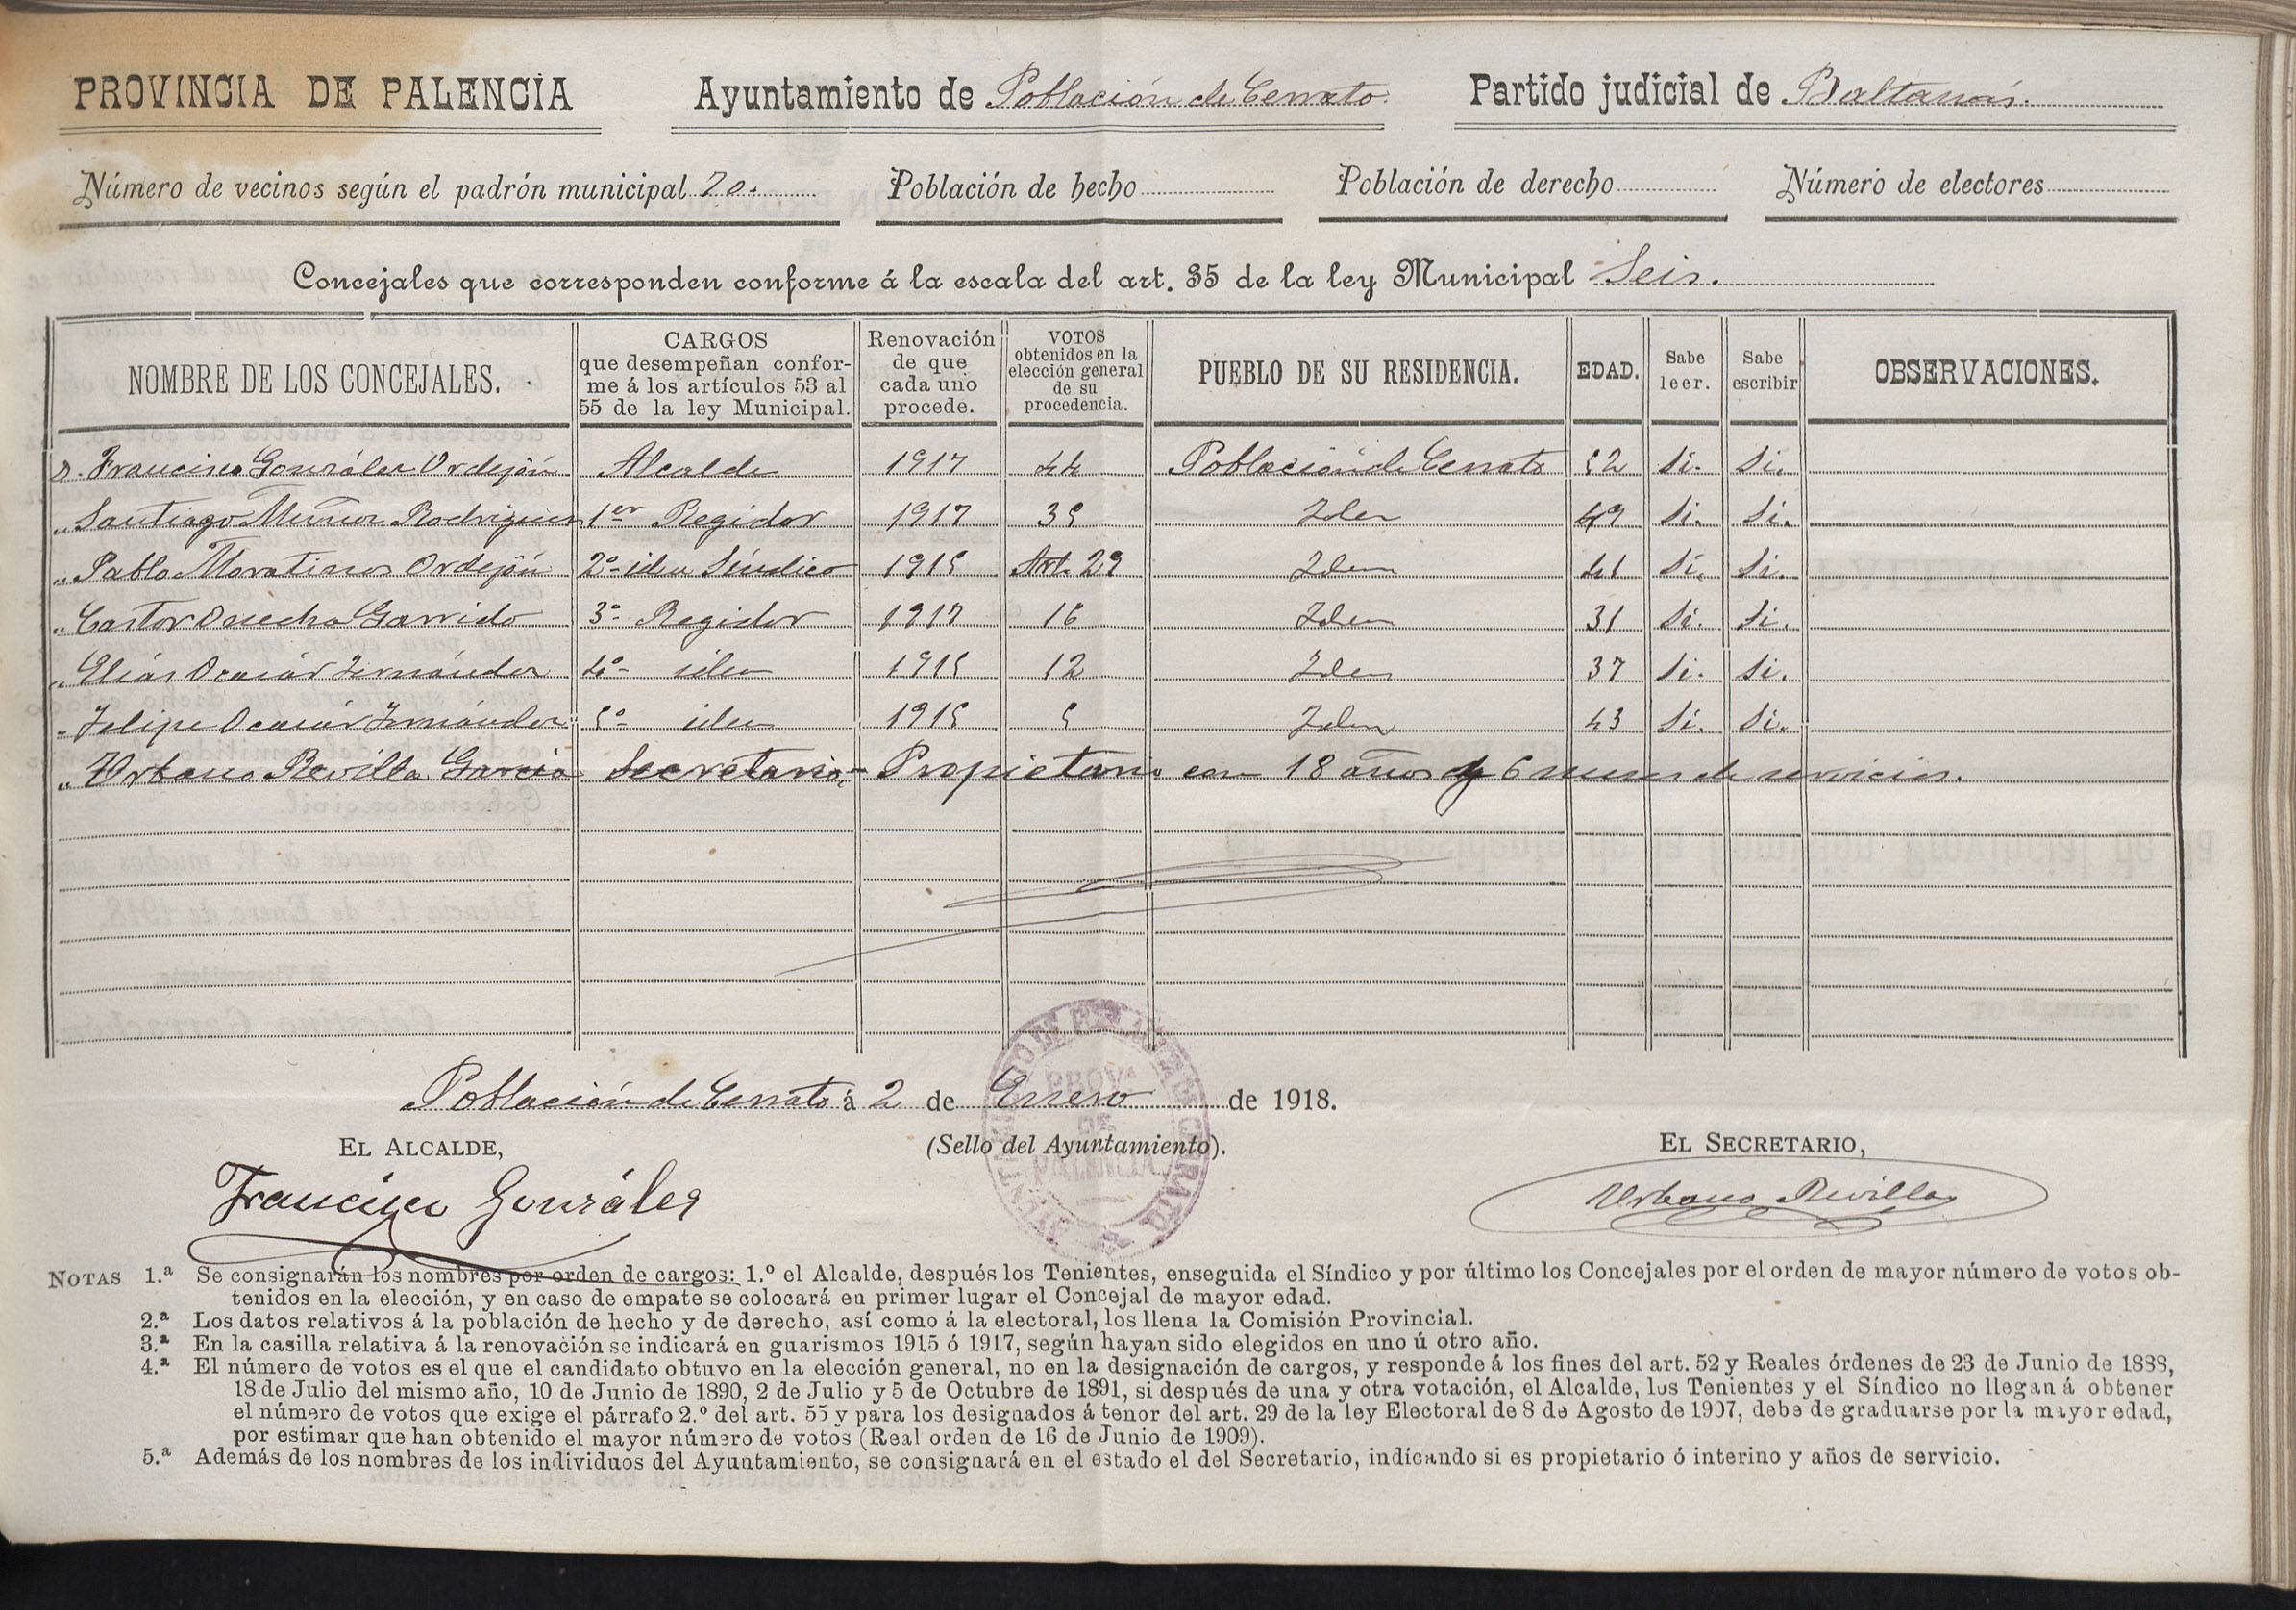 PROVINCIA DE PALENCIA Ayuntamiento de Población de Cerrato. Partido judicial de Baltanás.
Número de vecinos según el padrón municipal 70. Población de hecho Población de derecho Número de electores
Concejales que corresponden conforme á la escala del art. 35 de la ley Municipal Seis.
NOMBRE DE LOS CONCEJALES. CARGOS que desempeñan conforme á los artículos 53 al 55 de la ley Municipal. Renovación de que cada uno procede. VOTOS obtenidos en la elección general de su procedencia. PUEBLO DE SU RESIDENCIA. EDAD. Sabe leer. Sabe escribir OBSERVACIONES.
D. Francisco González Ordejón Alcalde 1917 44 Población de Cerrato 52 Si. Si.
„ Santiago Muñoz Rodríguez 1er Regidor 1917 35 Idem 49 Si. Si.
„ Pablo Moratinos Ordejón 2º idem Síndico 1915 Art. 29 Idem 41 Si. Si.
„ Castor Garrido 3º Regidor 1917 16 Idem 31 Si. Si.
„ Elías Ocasar Fernández 4º idem 1915 12 Idem 37 Si. Si.
„ Felipe Ocasar Fernández 5º idem 1915 5 Idem 43 Si. Si.
„ Urbano Revilla García Secretario - Propietario con 18 años y 6 meses de servicios.
Población de Cerrato á 2 de Enero de 1918.
EL ALCALDE, (Sello del Ayuntamiento). EL SECRETARIO,
Francisco González Urbano Revilla
PROVª DE PALENCIA
NOTAS 1.ª Se consignarán los nombres por orden de cargos: 1.º el Alcalde, después los Tenientes, enseguida el Síndico y por último los Concejales por el orden de mayor número de votos ob-
tenidos en la elección, y en caso de empate se colocará en primer lugar el Concejal de mayor edad.
2.ª Los datos relativos á la población de hecho y de derecho, así como á la electoral, los llena la Comisión Provincial.
3.ª En la casilla relativa á la renovación se indicará en guarismos 1915 ó 1917, según hayan sido elegidos en uno ú otro año.
4.ª El número de votos es el que el candidato obtuvo en la elección general, no en la designación de cargos, y responde á los fines del art. 52 y Reales órdenes de 23 de Junio de 1888,
18 de Julio del mismo año, 10 de Junio de 1890, 2 de Julio y 5 de Octubre de 1891, si después de una y otra votación, el Alcalde, los Tenientes y el Síndico no llegan á obtener
el número de votos que exige el párrafo 2.º del art. 55 y para los designados á tenor del art. 29 de la ley Electoral de 8 de Agosto de 1907, debe de graduarse por la mayor edad,
por estimar que han obtenido el mayor número de votos (Real orden de 16 de Junio de 1909).
5.ª Además de los nombres de los individuos del Ayuntamiento, se consignará en el estado el del Secretario, indicando si es propietario ó interino y años de servicio.